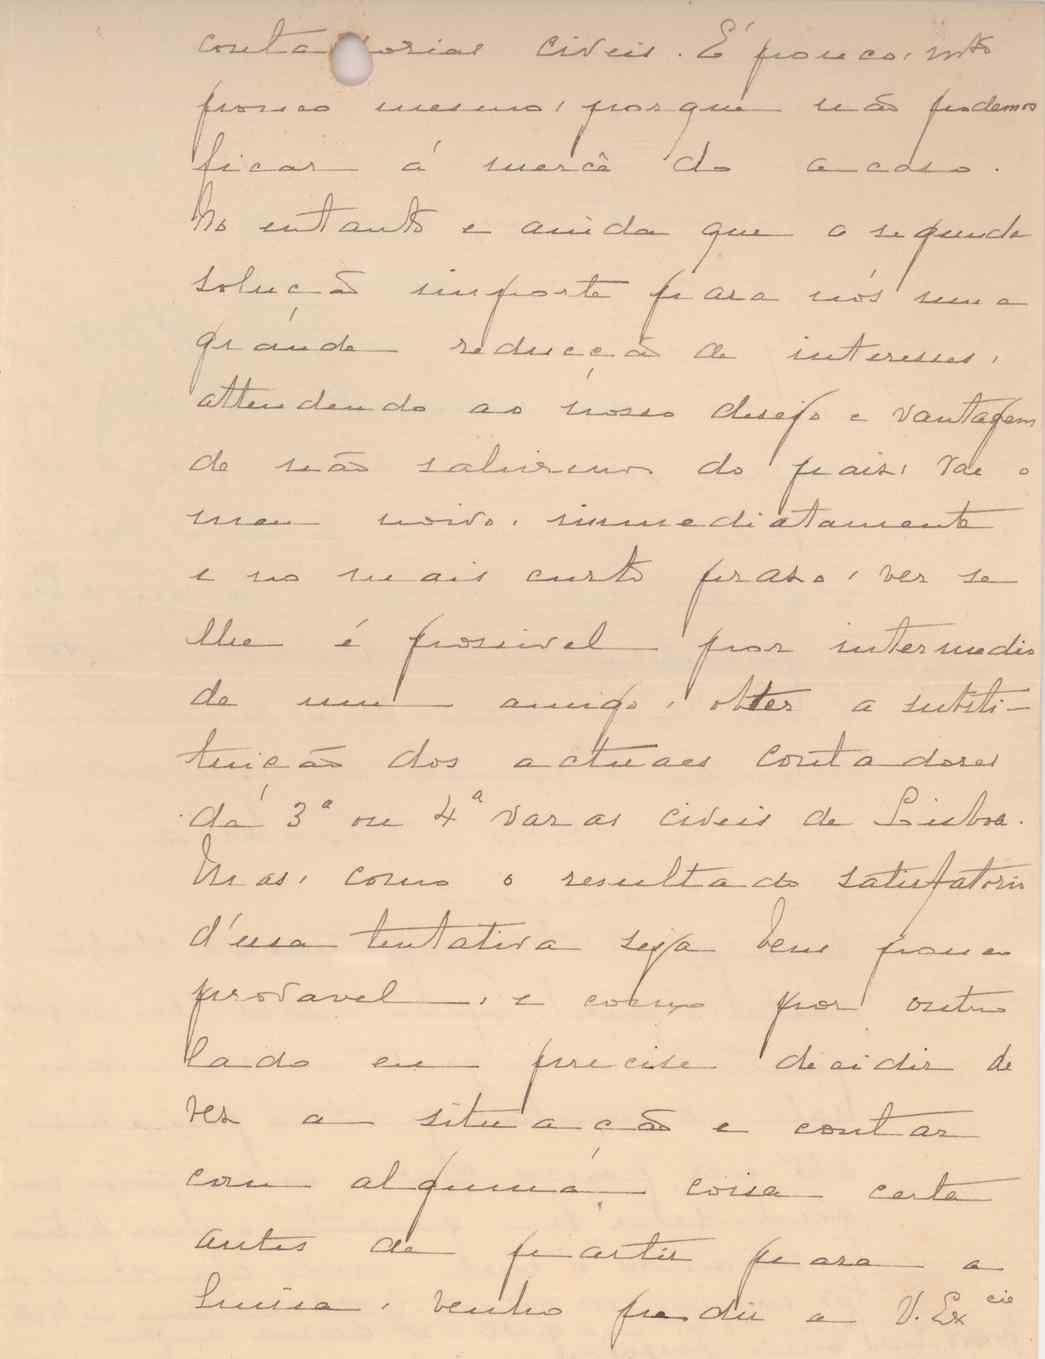 contadorias civeis. É pouco, mto
pouco mesmo, porque não podemos
ficar á mercê do acaso.
No entanto e ainda que a segunda
solução importe para nós uma
grande reducção de interesses,
attendendo ao nosso desejo e vantagem
de não sahirmos do paiz, vae o
meu noivo, immediatamente
e no mais curto praso, ver se
lhe é possivel por intermedio
de um amigo, obter a substi-
tuição dos actuaes contadores
da 3ª ou 4ª varas civeis de Lisboa.
Mas, como o resultado satisfatorio
d'essa tentativa seja bem pouco
provavel, e como por outro
lado eu precise decidir de
vez a situação e contar
com alguma coisa certa
antes de partir para a
Suissa, venho pedir a V. Excia